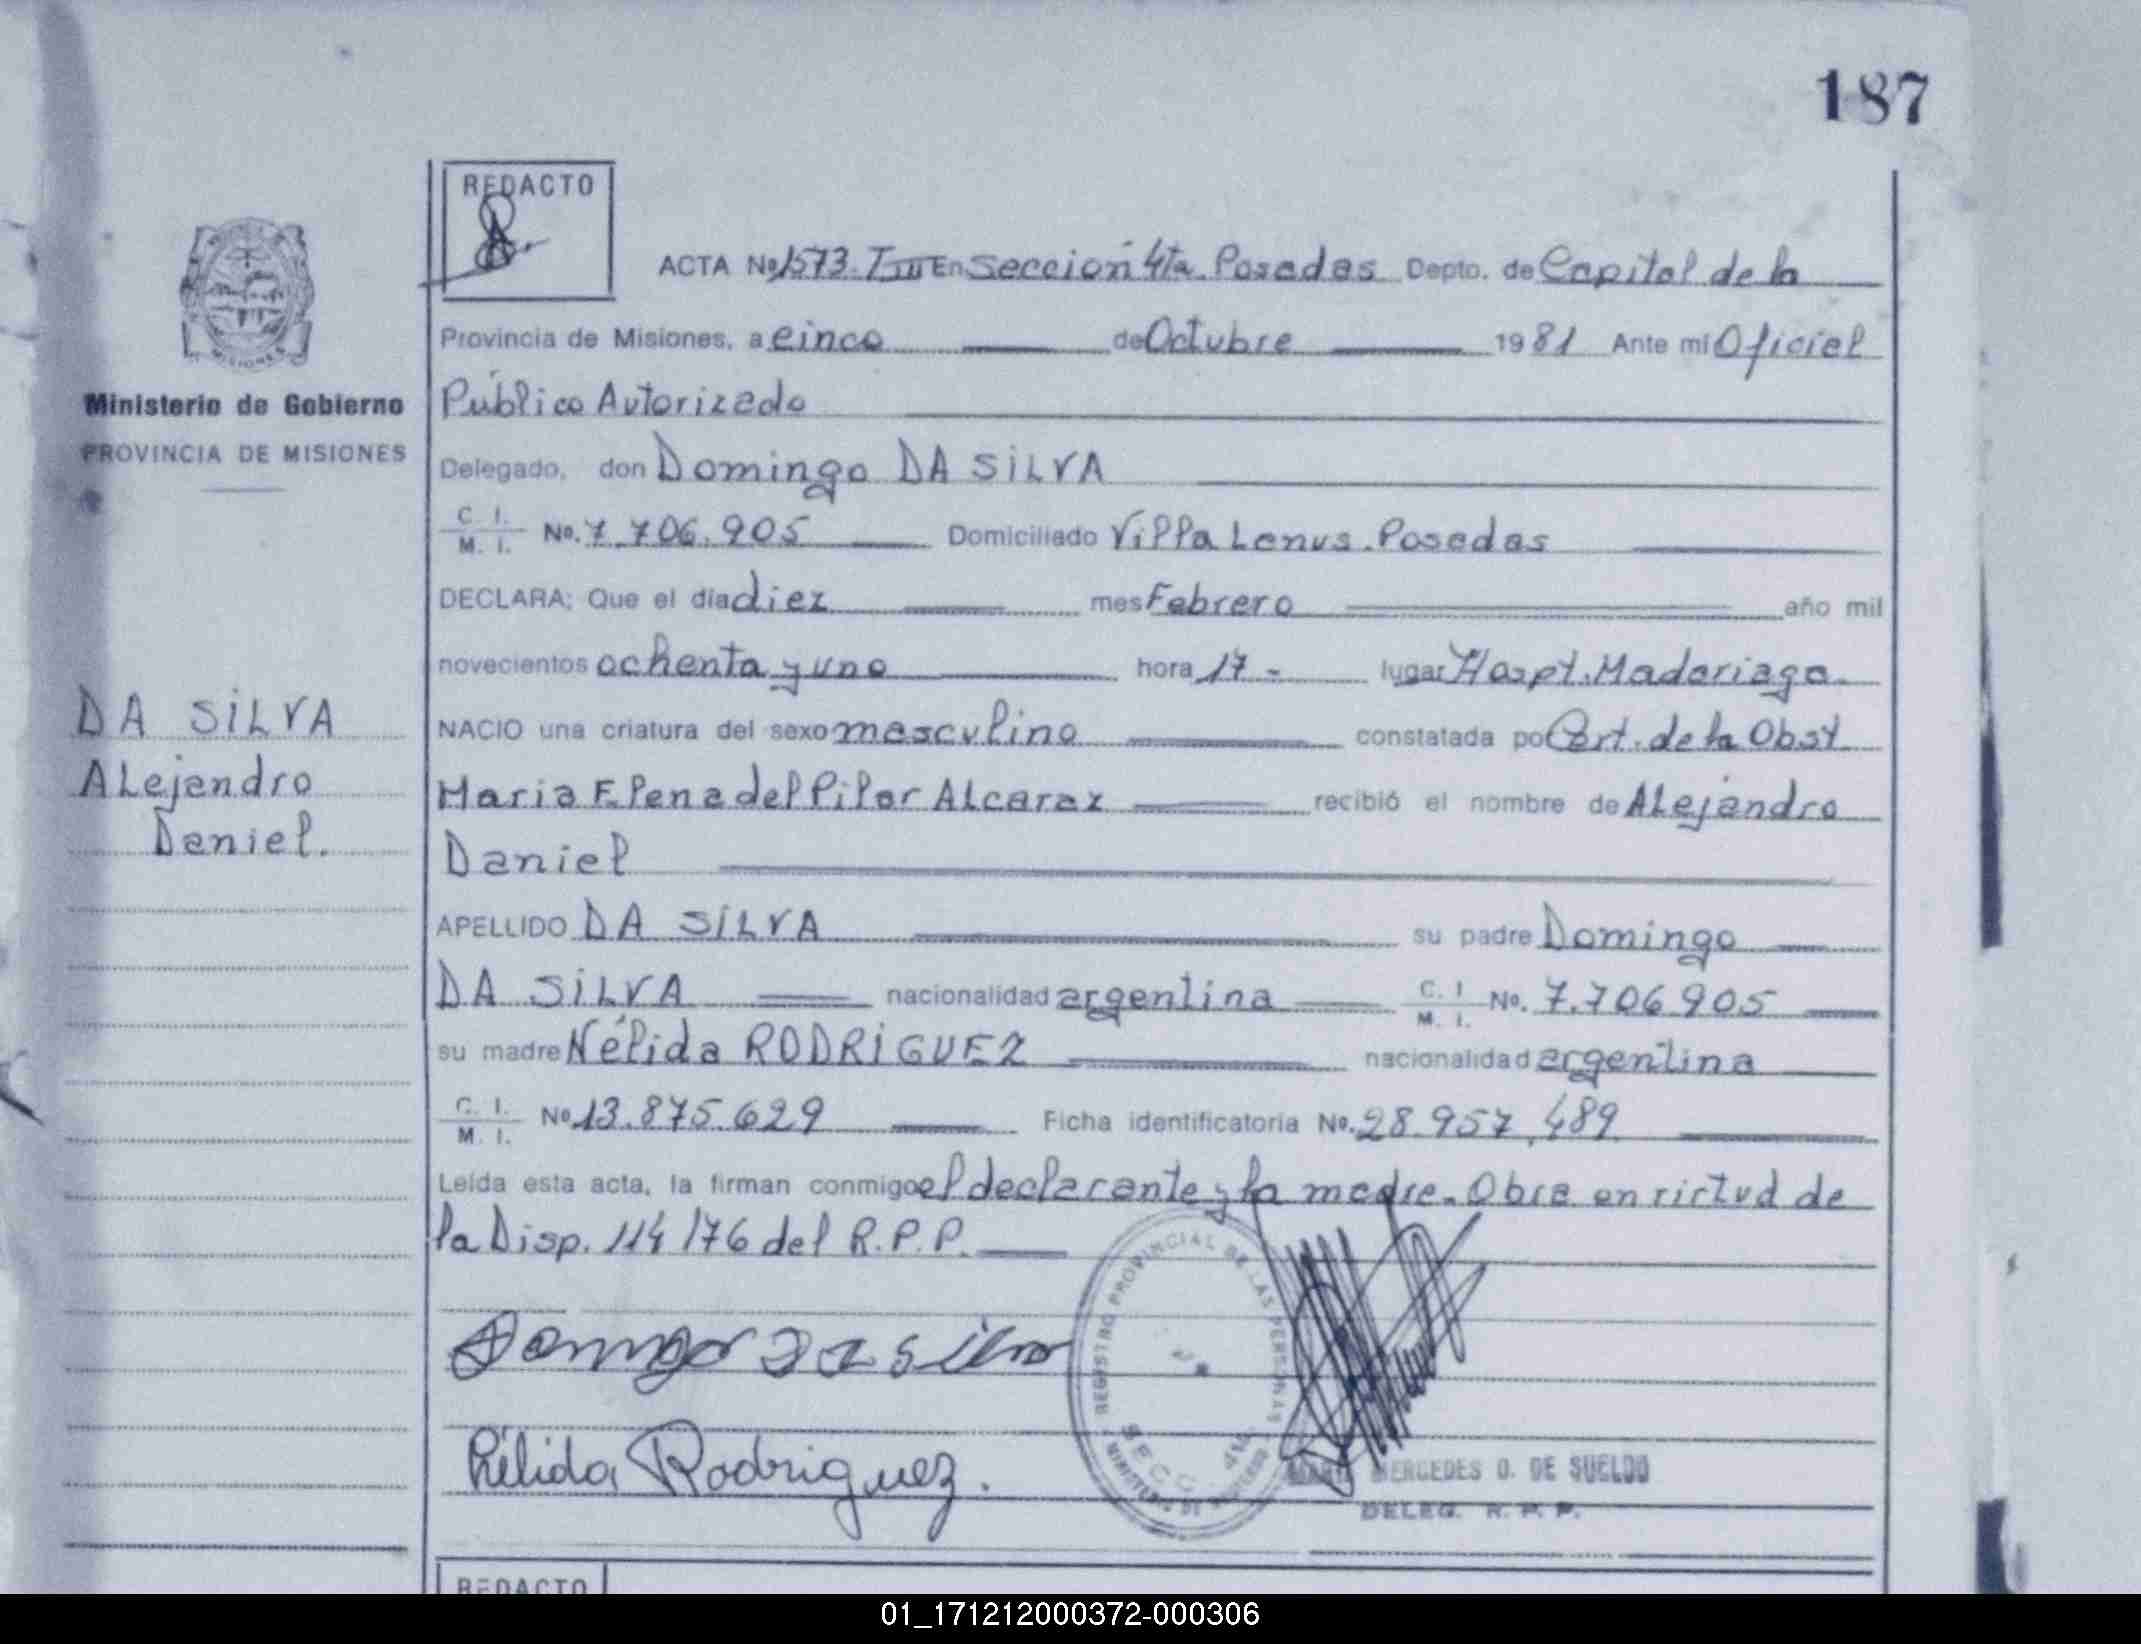 187
REDACTO
MISIONES
Ministerio de Gobierno
PROVINCIA DE MISIONES
DA SILVA
Alejandro
Daniel.
ACTA No 1573. T III En Sección 4ta. Posadas Depto. de Capital de la
Provincia de Misiones, a cinco de Octubre 1981 Ante mi Oficial
Público Autorizado
Delegado, don Domingo DA SILVA
C. I. M. I. No. 7.706.905 Domiciliado Villa Lanus. Posadas
DECLARA; Que el día diez mes Febrero año mil
novecientos ochenta y uno hora 17 - lugar Hospt. Madariaga.
NACIO una criatura del sexo masculino constatada po Cert. de la Obst
Maria Elena del Pilar Alcaraz recibió el nombre de Alejandro
Daniel
APELLIDO DA SILVA su padre Domingo
DA SILVA nacionalidad argentina C. I. M. I. No. 7.706.905
su madre Nélida RODRIGUEZ nacionalidad argentina
C. I. M. I. No 13.875.629 Ficha identificatoria No. 28.957.489
Leída esta acta, la firman conmigo el declarante y la madre. Obra en virtud de
la Disp. 114/76 del R.P.P.
Domingo Da Silva
REGISTRO PROVINCIAL DE LAS PERSONAS
SECC. 4ta.
Nélida Rodriguez.
MERCEDES O. DE SUELDO
DELEG. R. P. P.
REDACTO
01_171212000372-000306